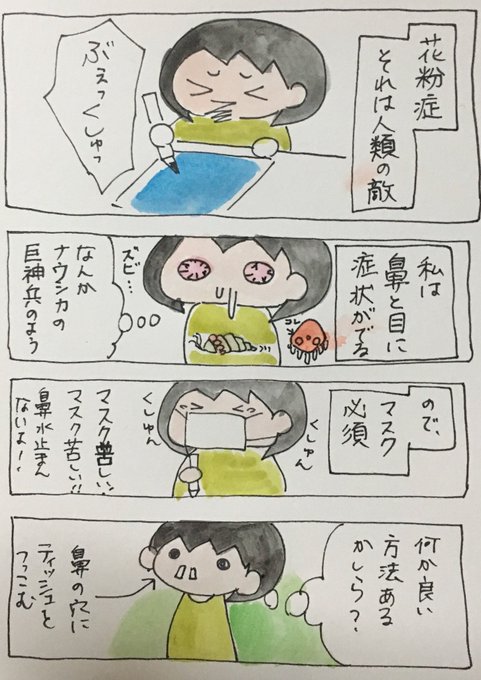 花粉症
それは人類の敵
ぶぇっくしゅっ
私は
鼻と目に
症状がでる
コレ
ズビ…
なんか
ナウシカの
巨神兵のよう
ので、
マスク
必須
くしゅん
くしゅん
マスク苦しい!
マスク苦しい!!
鼻水止まん
ないよー!
何か良い
方法ある
かしら?
鼻の穴に
ティッシュを
つっこむ